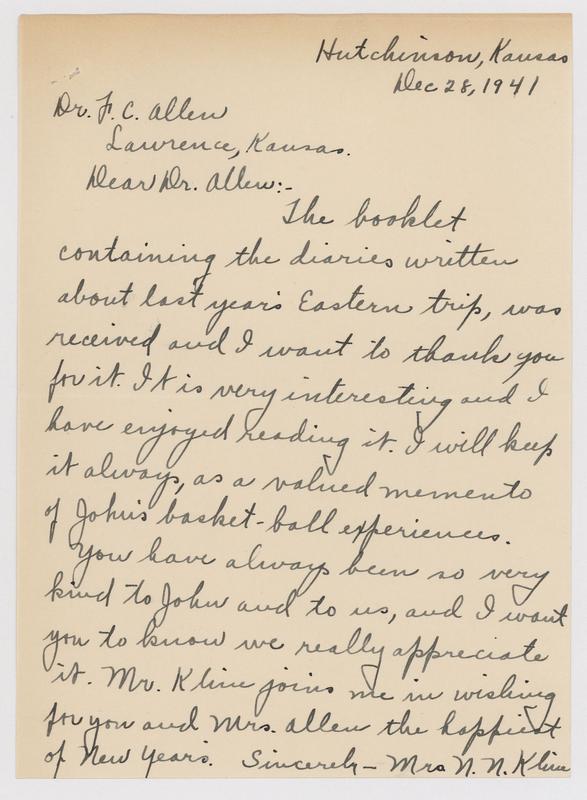 Hutchinson, Kansas
Dec 28, 1941
Dr. F. C. Allen
Lawrence, Kansas.
Dear Dr. Allen:-
The booklet
containing the diaries written
about last year's Eastern trip, was
received and I want to thank you
for it. It is very interesting and I
have enjoyed reading it. I will keep
it always, as a valued memento
of John's basket-ball experiences.
You have always been so very
kind to John and to us, and I want
you to know we really appreciate
it. Mr. Kline joins me in wishing
for you and Mrs. Allen the happiest
of New Years. Sincerely - Mrs N. N. Kline